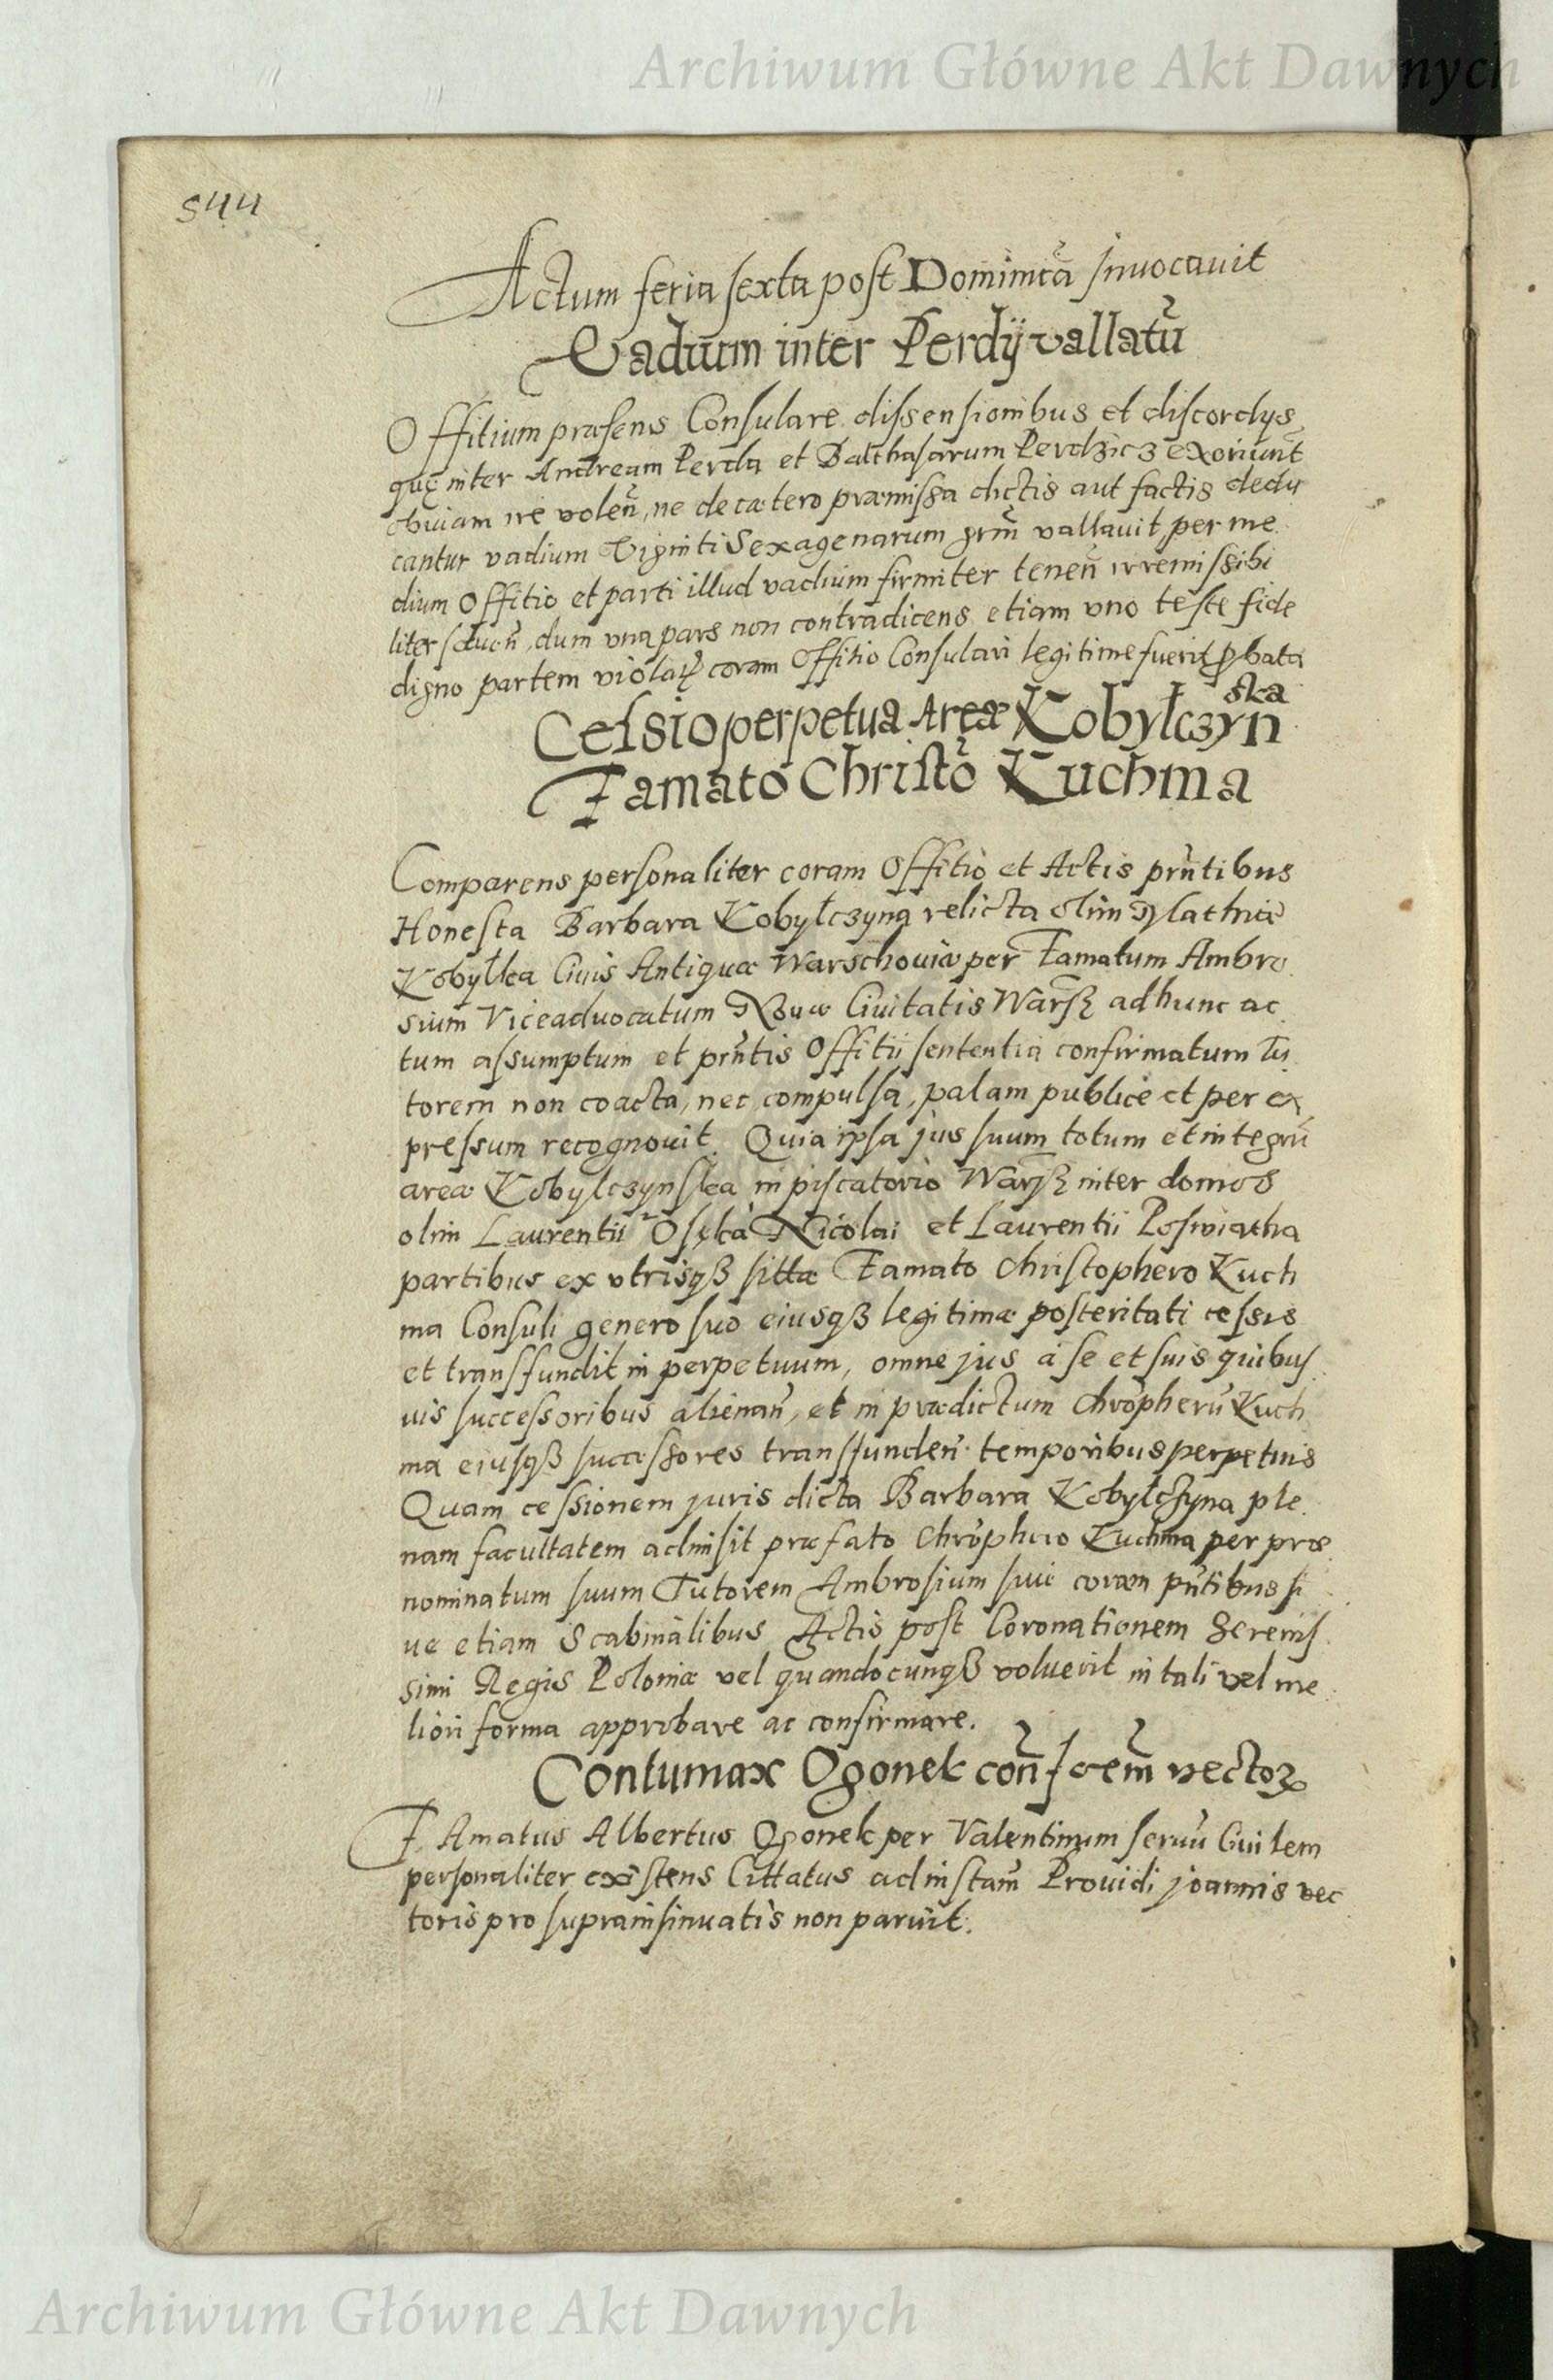 Archiwum Główne Akt Dawnych
544
Actum feria sexta post Dominicā Invocavit
Vadium inter Perdÿ vallatū
Offitium præsens Consulare dissensionibus et discordys
quę inter Andream Perda et Balthasarum Perdzicz exoriunt̃
obviam ire voleñ, ne de cætero præmissa dictis aut factis dedu
cantur vadium Viginti Sexagenarum grm̃ vallavit, per me
dium Offitio et parti illud vadium firmiter teneñ irremissibi
liter solueñ, dum una pars non contradicens etiam vno teste fide
digno partem coram Offitio Consulari legitime fuerit ꝓbata
Cessio perpetua Areæ Kobyłczyn
ska
Famato Christo᷒ Kuchma
Comparens personaliter coram Offitio et Actis pr̃ntibus
Honesta Barbara Kobyłczyna relicta olim
Kobyłka Civis Antiquæ Warschoviæ per Famatum Ambro
sium Viceadvocatum Novæ Civitatis Warsz̃ ad hunc ac
tum assumptum et pr̃ntis Offitii sententia confirmatum Tu
torem non coacta, nec compulsa, palam publice et per ex
pressum recognovit. Quia ipsa jus suum totum et integrũ
areæ Kobylczynska in piscatorio Warsz̃ inter domos
olim Laurentii Osęka Nicolai et Laurentii Poswiatha
partibus ex utrisqß sittæ Famato Christophero Kuch
ma Consuli genero suo eiusqß legitimæ posteritati cessit
et transfundit in perpetuum, omne jus a se et suis quibus
vis successoribus alienañ, et in prædictum Chrõpherũ Kuch
ma eiusqß successores transfundeñ temporibus perpetuis
Quam cessionem juris dicta Barbara Kobyłczyna ple
nam facultatem admisit præfato Chrõphero Kuchma per præ
nominatum suum Tutorem Ambrosium sive coram pñtibus si
ve etiam Scabinalibus Actis post Coronationem Serenis
simi Regis Poloniæ vel quandocunqß voluerit in tali vel me
liori forma approbare ac confirmare.
Contumax Ogonek vectoꝝ
FAmatus Albertus Ogonek per Valentinum servũ Civilem
personaliter existens Cittatus ad instam̃ Providi joannis vec
toris pro suprainsinuatis non paruit.
Archiwum Główne Akt Dawnych